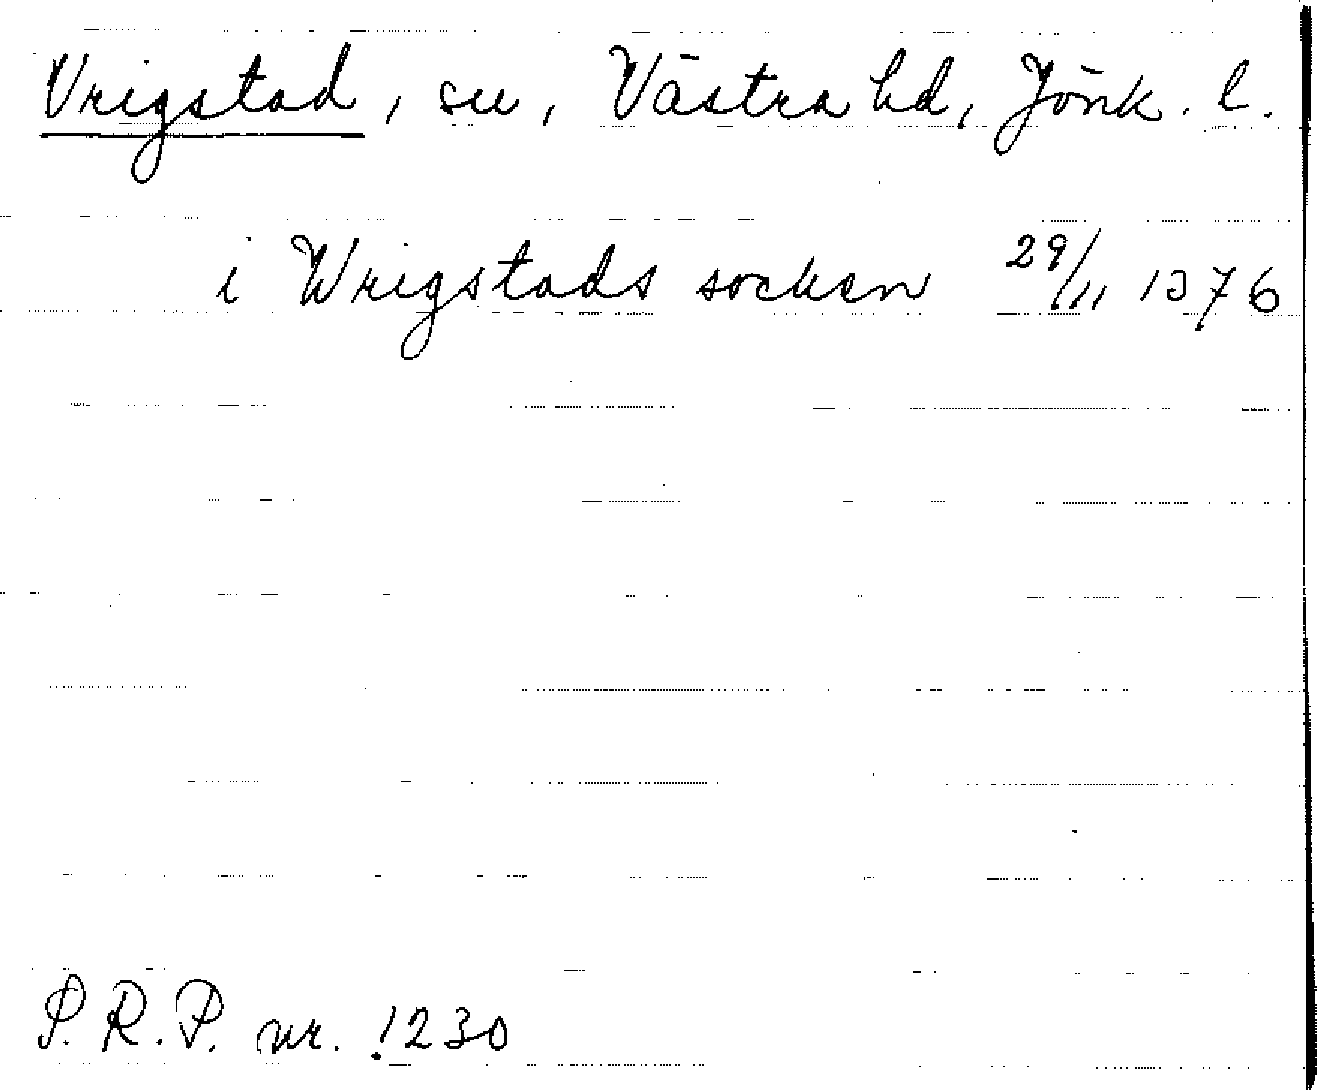 Vrigstad, sn, Västra hd, Jönk. l.
i Wrigstads socken 29/11 1376
S.R.P. nr. 1230